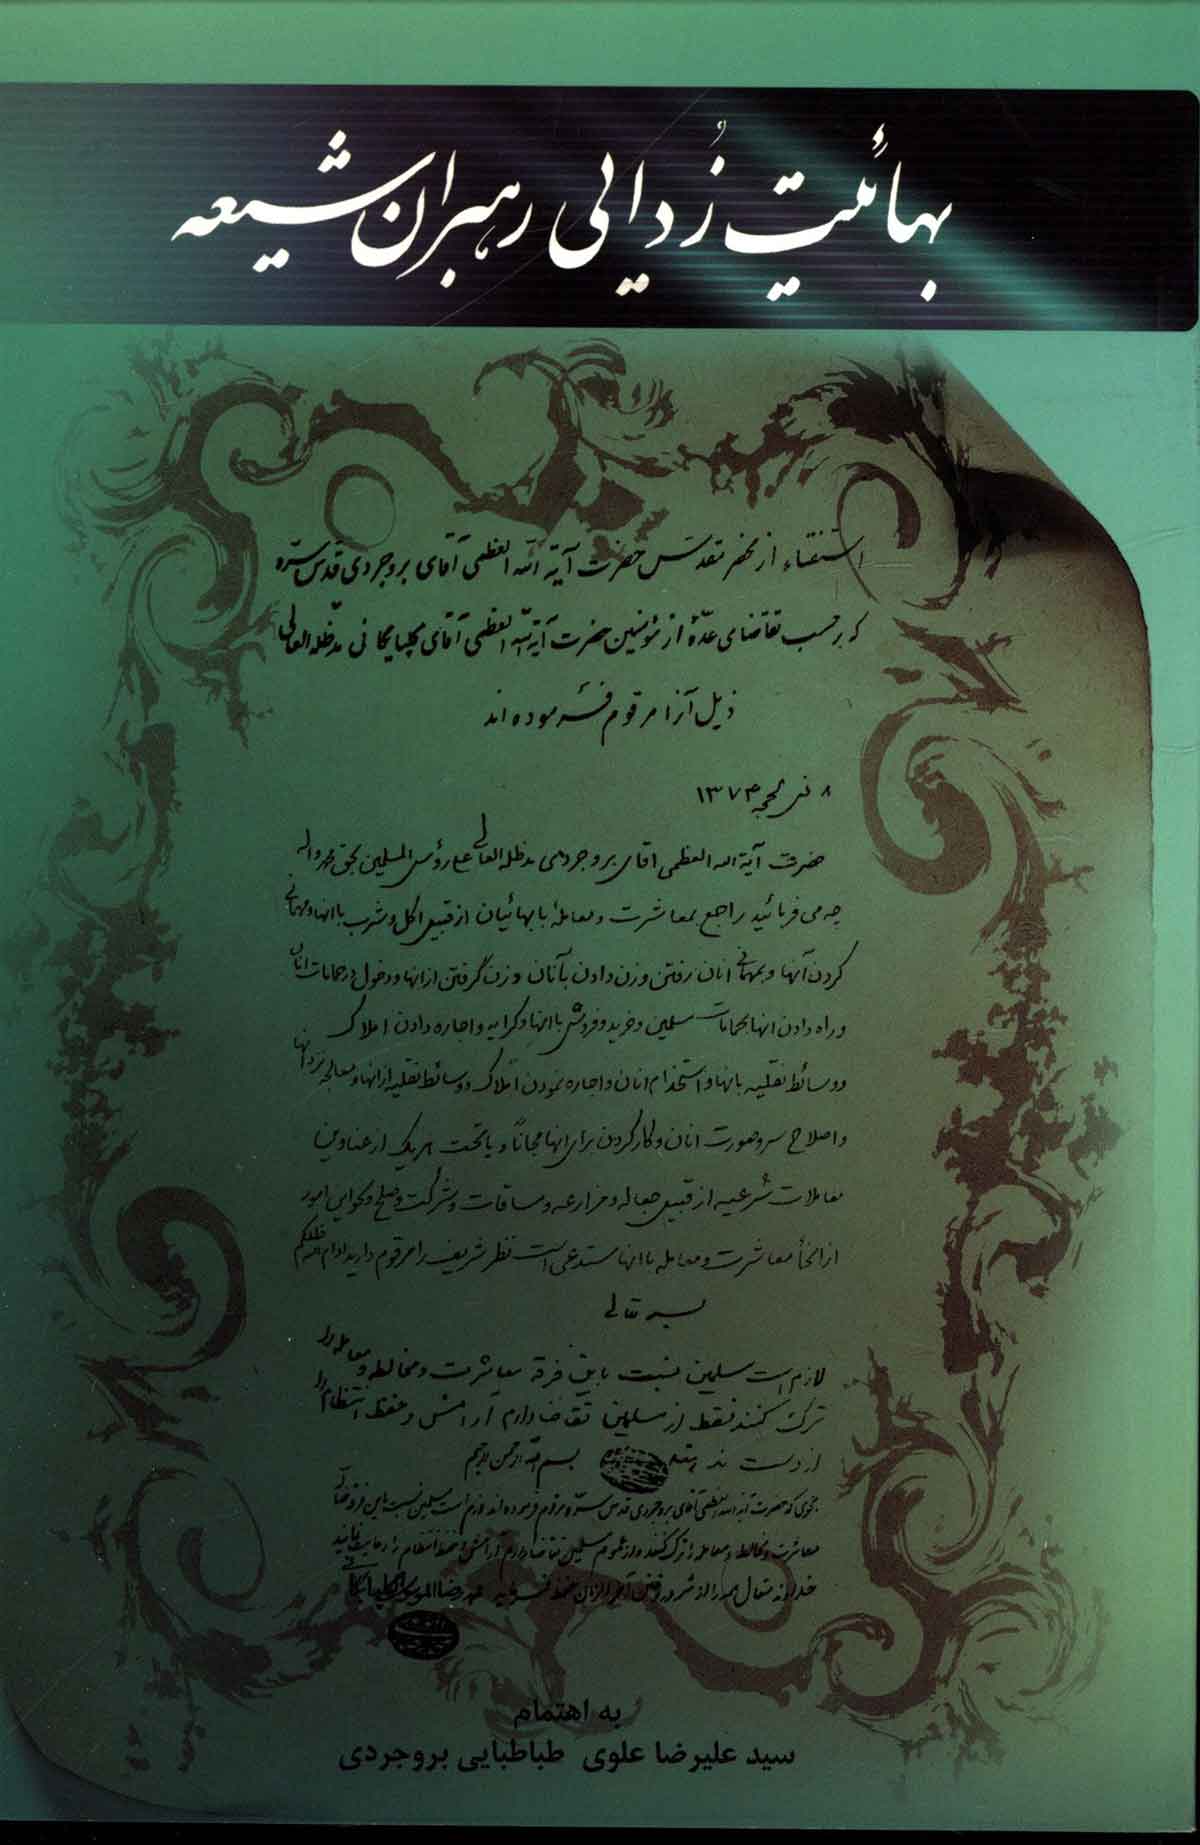 بهائیت زُدائی رهبران شیعه
استفتاء از محضر مقدّس حضرت آیة الله العظمی آقای بروجردی قدّس سرّه
که برحسب تقاضای عدّهٔ از مؤمنین حضرت آیة الله العظمی آقای گلپایگانی مدّظله العالی
ذیل آنرا مرقوم فرموده اند
۸ ذی الحجه ۱۳۷۴
حضرت آیة الله العظمی اقای بروجردی مدظله العالی علی رؤس المسلمین بحق محمد واله
چه می فربائید راجع بمعاشرت و معامله با بهائیان از قبیل اکل و شرب با انها و مهمانی
کردن آنها و بمهمانی انان رفتن و زن دادن بآنان و زن گرفتن از انها و دخول در حمامات انان
و راه دادن انها بحمامات مسلمین و خرید و فروش با انها و کرایه و اجاره دادن املاک
و وسائط نقلیه بانها و استخدام انان و اجاره نمودن املاک و وسائط نقلیه از انها و معالجه نزد انها
و اصلاح سر و صورت انان و کار کردن برای انها مجاناً و یا تحت هریک از عناوین
معاملات شرعیه از قبیل جعاله و مزارعه و مساقات و شرکت و صلح و نحو این امور
از انحاء معاشرت و معامله با انها مستدعی است نظر شریف را مرقوم دارید ادام الله ظلکم
بسمه تعالی
لازم است مسلمین نسبت باین فرقه معاشرت و مخالطه و معامله را
ترک کنند فقط از مسلمین تقاضا دارم آرامش و حفظ انتظام را
از دست ندهند
بسم الله الرحمن الرحیم
حضرت آیة الله العظمی آقای بروجردی قدس سره مرقوم فرموده اند لازم است مسلمین نسبت باین فرقه
معاشرت و مخالطه و معامله را ترک کنند و از عموم مسلمین تقاضا دارم آرامش و حفظ انتظام را رعایت نمایند
خداوند متعال همه را از شرور و فتن آخر الزمان حفظ فرماید محمد رضا الموسوی الگلپایگانی
به اهتمام
سید علیرضا علوی طباطبایی بروجردی